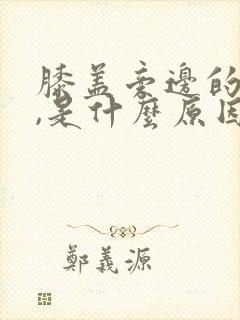 膝盖旁边的
,是什麼原因
鄭義源